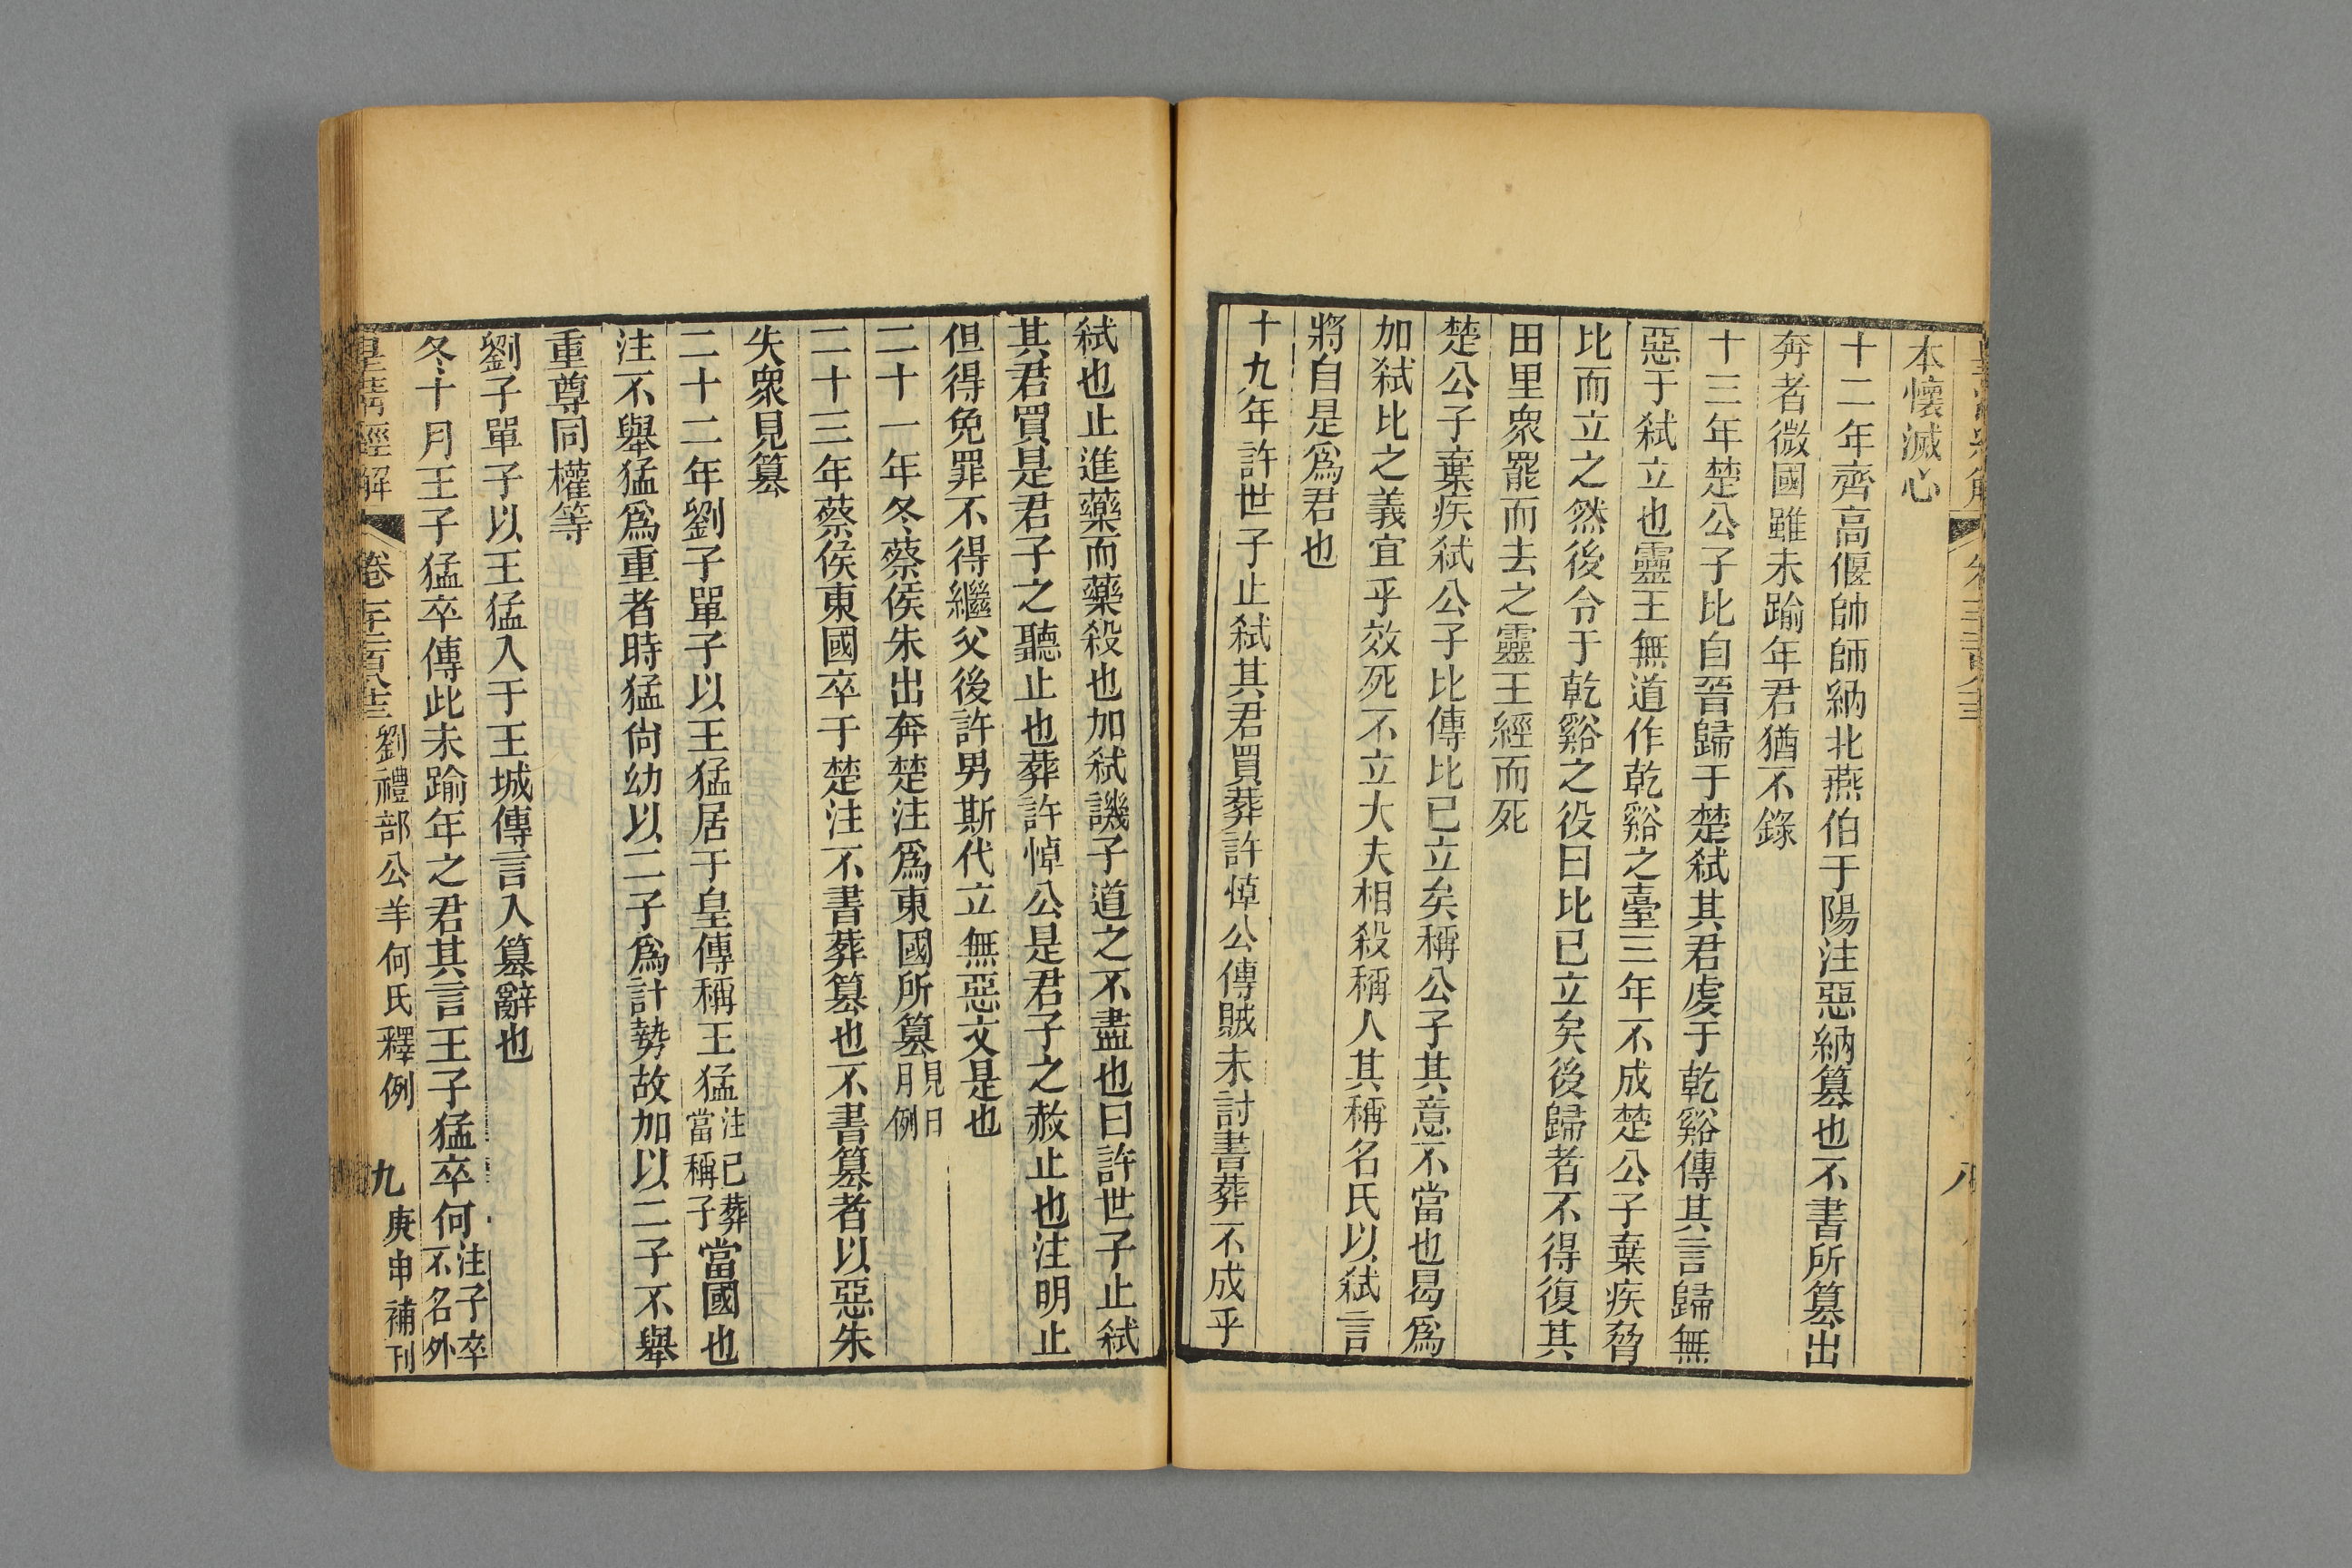 本懷滅心
十二年齊高偃帥師納北燕伯于陽注惡納篡也不書所篡出
奔者微國雖未踰年君猶不錄
十三年楚公子比自晉歸于楚弒其君虔于乾谿傳其言歸無
惡于弒立也靈王無道作乾谿之臺三年不成楚公子棄疾脅
比而立之然後令于乾谿之役曰比已立矣後歸者不得復其
田里眾罷而去之靈王經而死
楚公子棄疾弒公子比傳比已立矣稱公子其意不當也曷為
加弒比之義宜乎效死不立大夫相殺稱人其稱名氏以弒言
將自是為君也
十九年許世子止弒其君買葬許悼公傳賊未討書葬不成乎
弒也止進藥而藥殺也加弒譏子道之不盡也曰許世子止弒
其君買是君子之聽止也葬許悼公是君子之赦止也注明止
但得免罪不得繼父後許男斯代立無惡文是也
二十一年冬蔡侯朱出奔楚注為東國所篡見日月例
二十三年蔡侯東國卒于楚注不書葬篡也不書篡者以惡朱
失眾見篡
二十二年劉子單子以王猛居于皇傳稱王猛注已葬當稱子當國也
注不舉猛為重者時猛尚幼以二子為計勢故加以二子不舉
重尊同權等
劉子單子以王猛入于王城傳言入篡辭也
冬十月王子猛卒傳此未踰年之君其言王子猛卒何注子卒不名外
皇清經解 卷 劉禮部公羊何氏釋例 九 庚申補刊